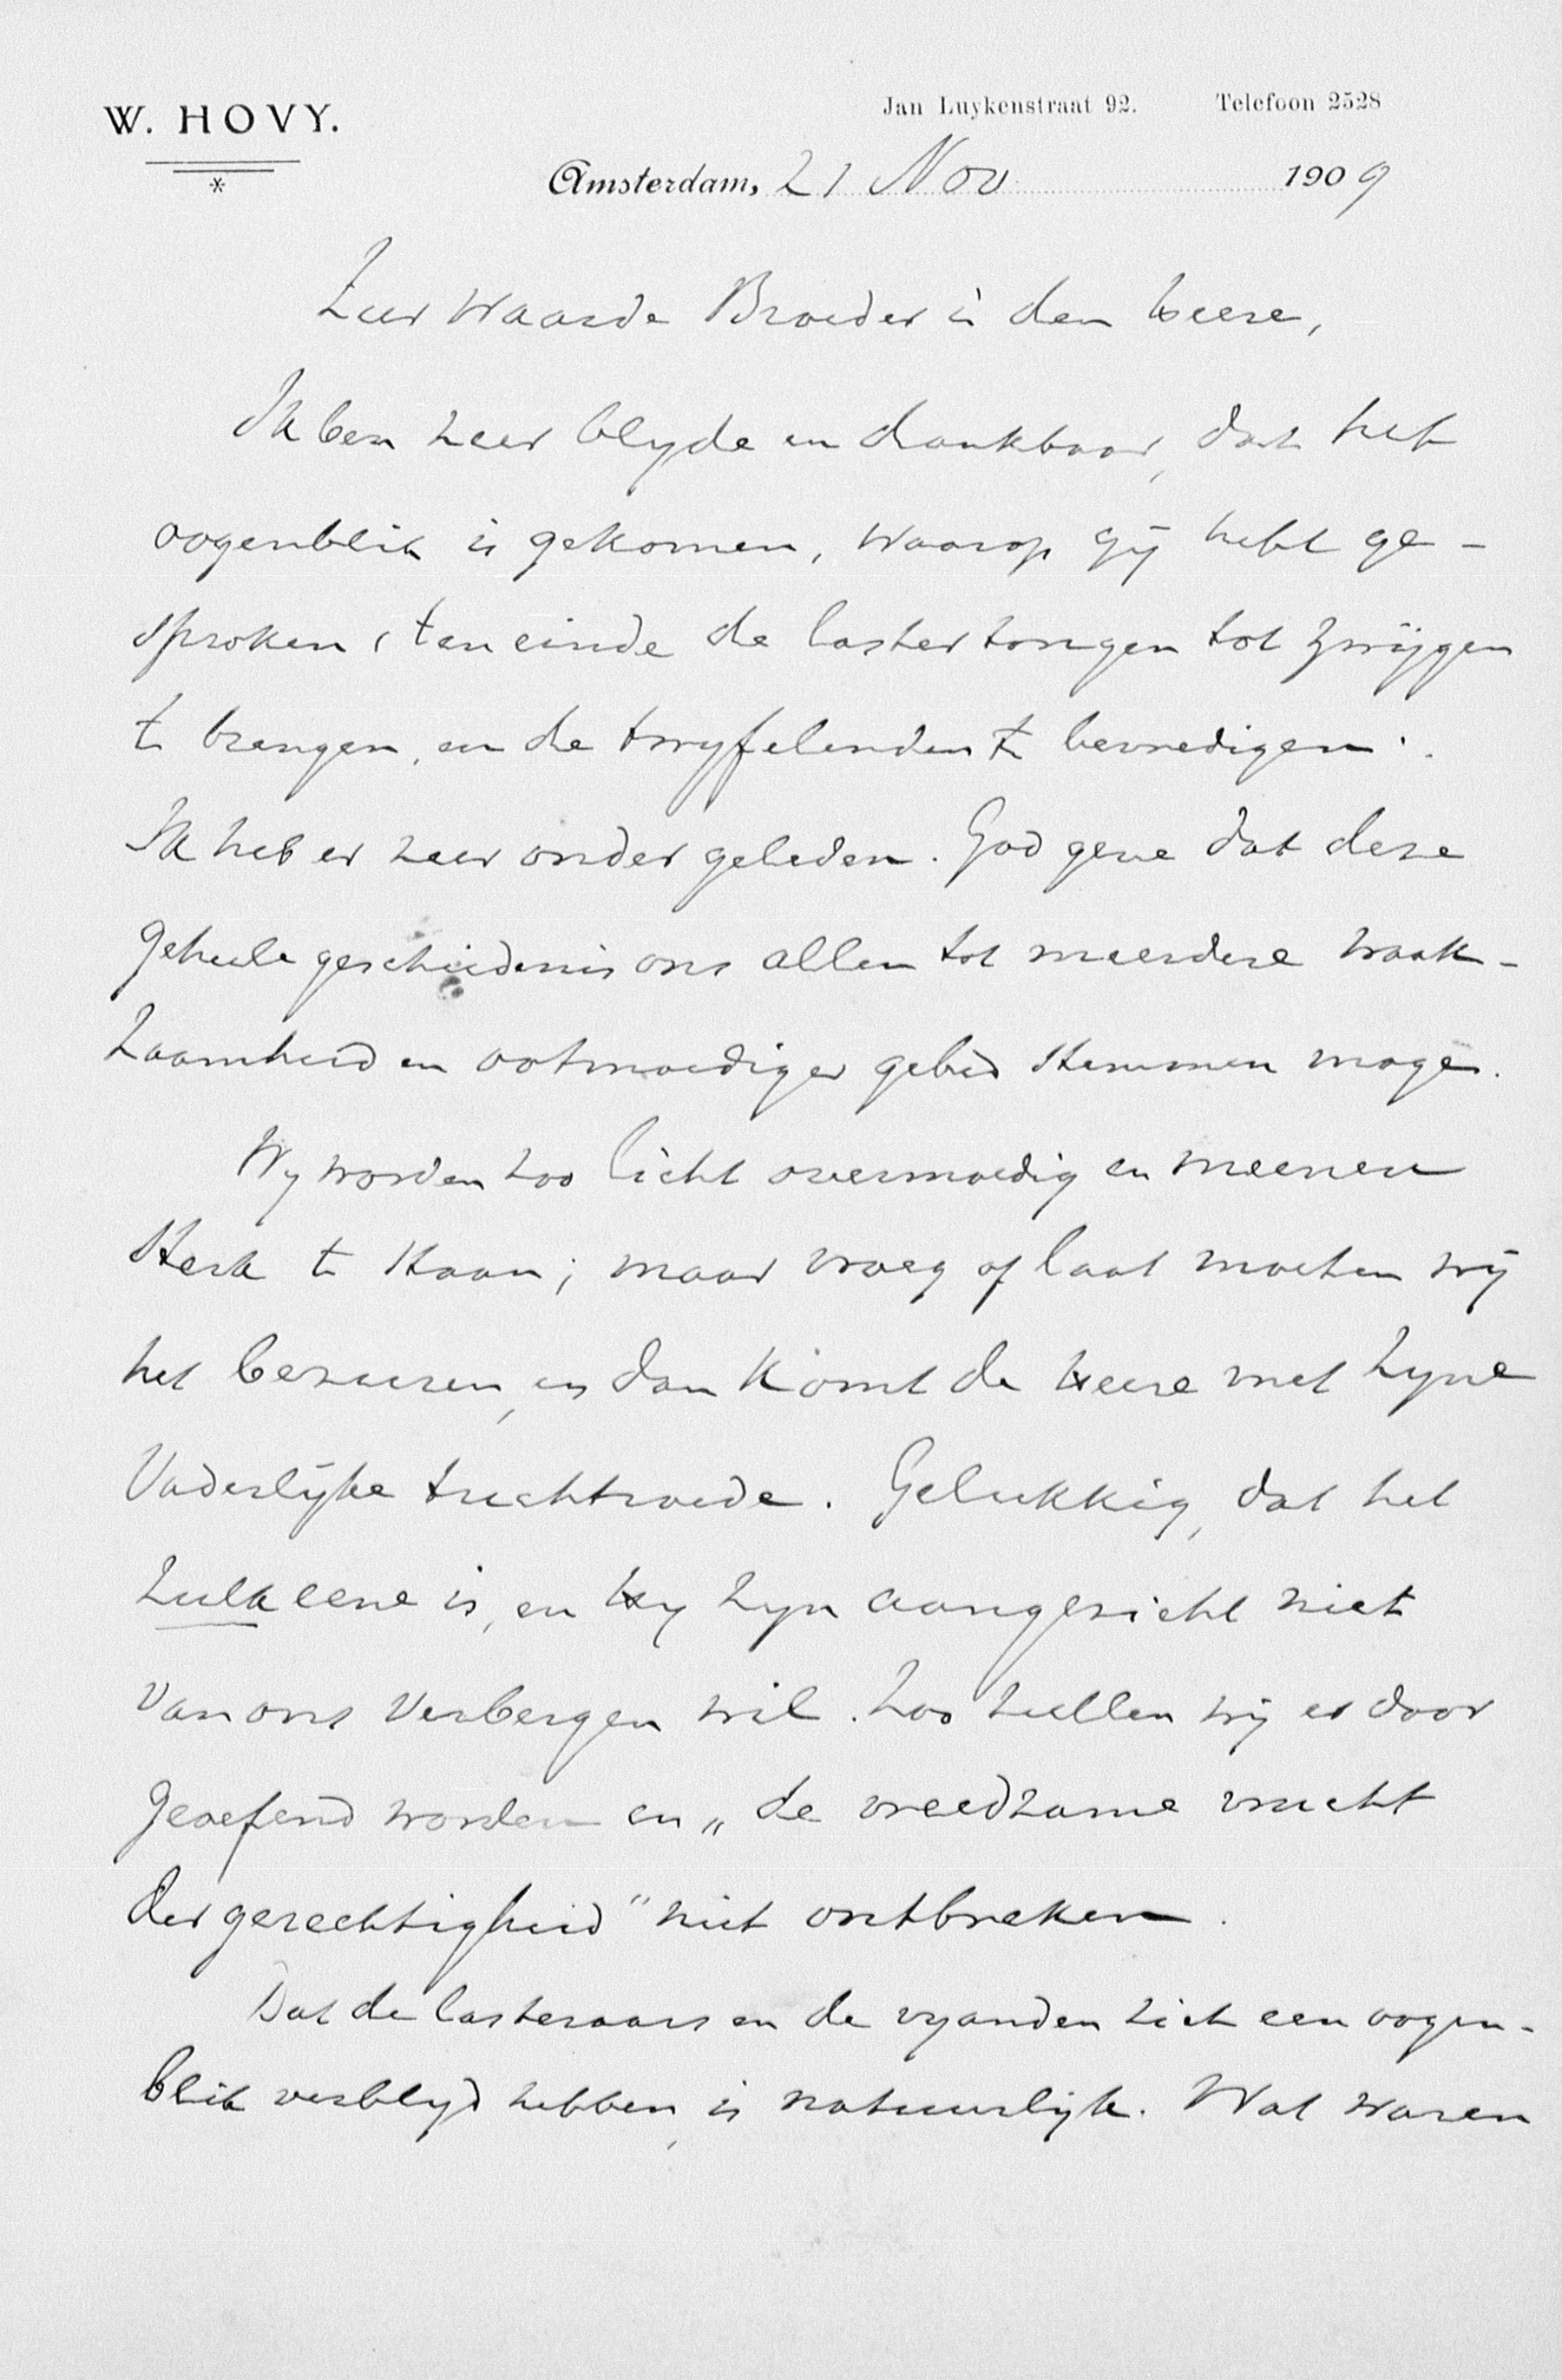 W. HOVY.
Jan Luykenstraat 92. Telefoon 2528
Amsterdam, 21 Nov 1909
Zeer Waarde Broeder in den Heere,
Ik ben zeer blyde en dankbaar, dat het
oogenblik is gekomen, waarop gij hebt ge-
sproken, ten einde de lastertongen tot zwijgen
te brengen, en de twyfelenden te bevredigen.
Ik heb er zeer onder geleden. God geve dat deze
geheele geschiedenis ons allen tot meerdere waak-
zaamheid en ootmoediger gebed stemmen moge.
Wy worden zoo licht overmoedig en meenen
sterk te staan; maar vroeg of laat moeten wij
het bezuren, en dan komt de Heere met Zyne
Vaderlijke tuchtroede. Gelukkig, dat het
zulk eene is, en Hy Zyn aangezicht niet
van ons verbergen wil. Zoo zullen wij er door
geoefend worden en „de vreedzame vrucht
der gerechtigheid" niet ontbreken.
Dat de lasteraars en de vyanden zich een oogen-
blik verblyd hebben, is natuurlijk. Wat waren